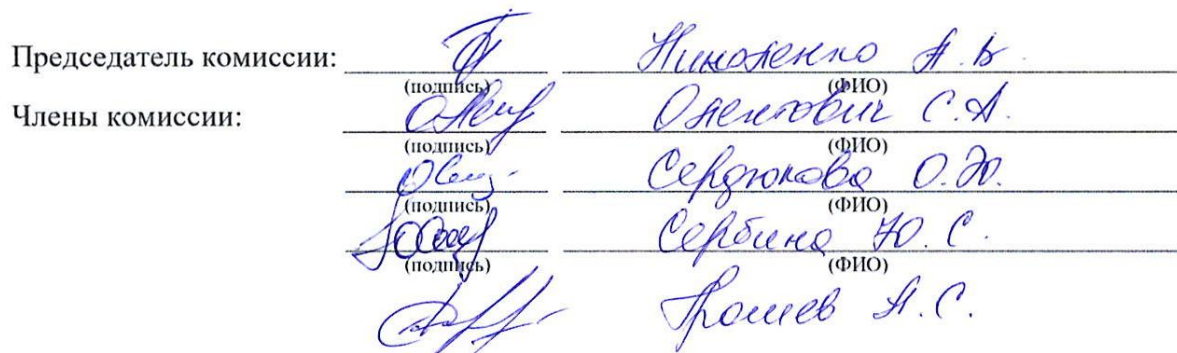 Председатель комиссии: Николенко А.В.
(подпись) (ФИО)
Члены комиссии: Олентович С.А.
(подпись) (ФИО)
Сердюкова О.Ю.
(подпись) (ФИО)
Сербина Ю.С.
(подпись) (ФИО)
А.С.